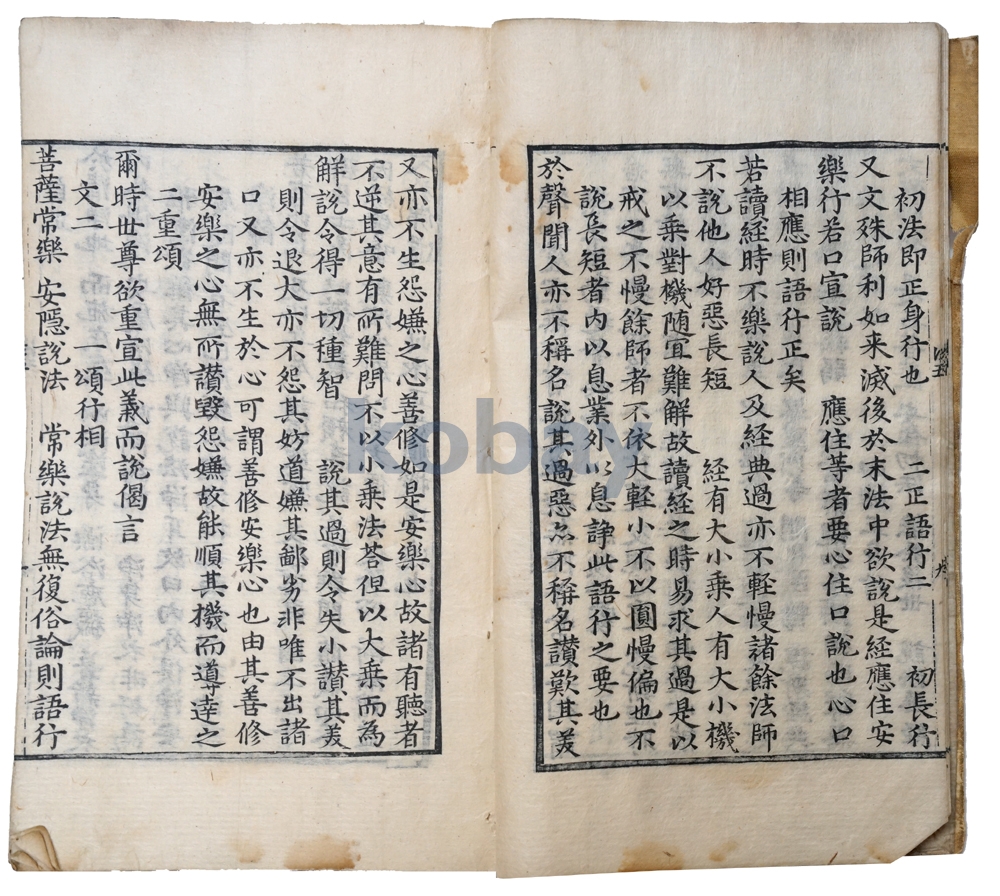 初法即正身行也　二正語行二　初長行
又文殊師利如来滅後於末法中欲說是経應住安
樂行若口宣說　應住等者要心住口說也心口
相應則語行正矣
若讀経時不樂說人及経典過亦不輕慢諸餘法師
不說他人好惡長短　経有大小乗人有大小機
以乗對機随宜難解故讀経之時易求其過是以
戒之不慢餘師者不依大輕小不以圓慢偏也不
說長短者内以息業外以息諍此語行之要也
於聲聞人亦不稱名說其過惡亦不稱名讃歎其美
又亦不生怨嫌之心善修如是安樂心故諸有聽者
不逆其意有所難問不以小乗法荅但以大乗而為
解說令得一切種智　說其過則令失小讃其美
則令退大亦不怨其妨道嫌其鄙劣非唯不出諸
口又亦不生於心可謂善修安樂心也由其善修
安樂之心無所讃毀怨嫌故能順其機而導達之
二重頌
爾時世尊欲重宣此義而說偈言
文二　一頌行相
菩薩常樂　安隠說法　常樂說法無復俗論則語行
kobay